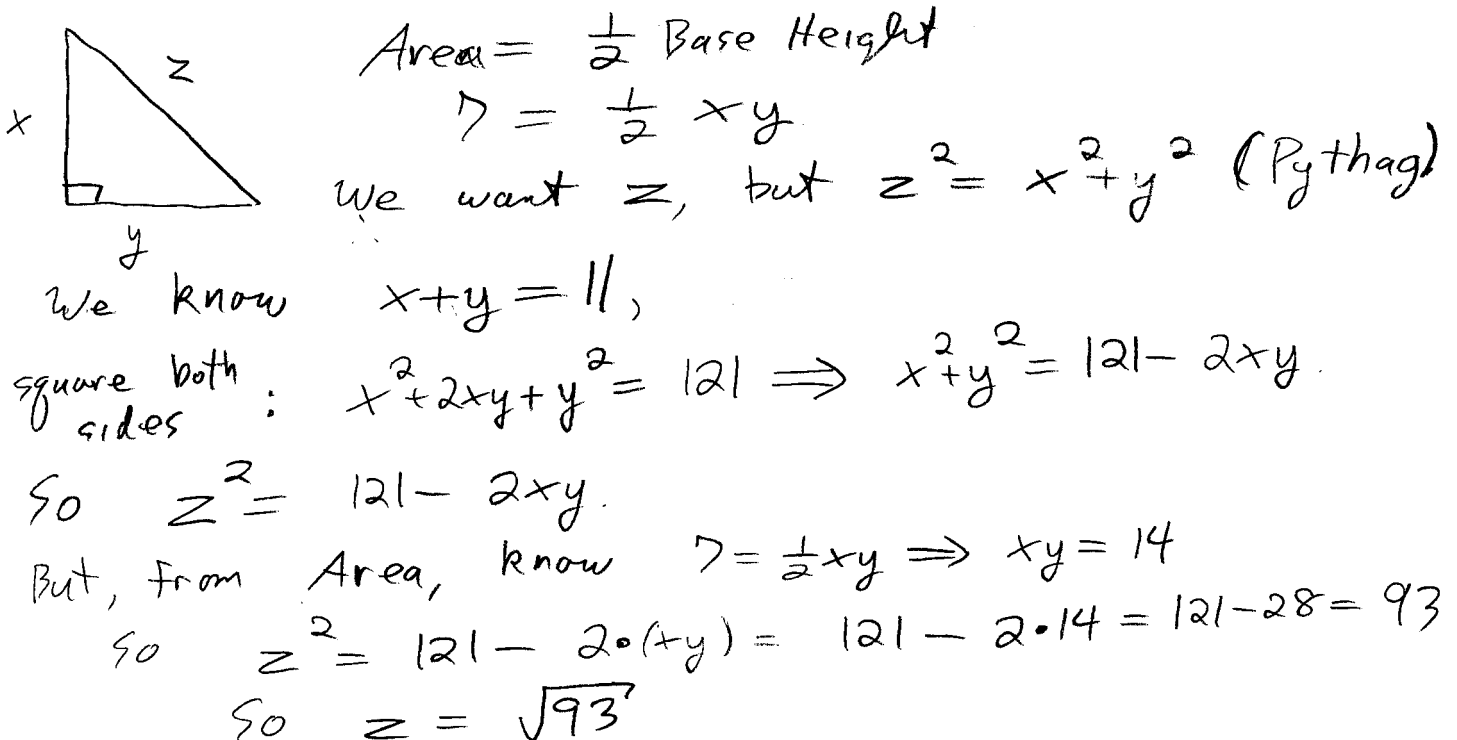 x
z
y
Area = 1/2 Base Height
7 = 1/2 xy
We want z, but z² = x² + y² (Pythag)
We know x+y = 11,
square both sides : x² + 2xy + y² = 121 ⇒ x² + y² = 121 - 2xy.
So z² = 121 - 2xy.
But, from Area, know 7 = 1/2 xy ⇒ xy = 14
so z² = 121 - 2•(xy) = 121 - 2•14 = 121-28 = 93
So z = √93